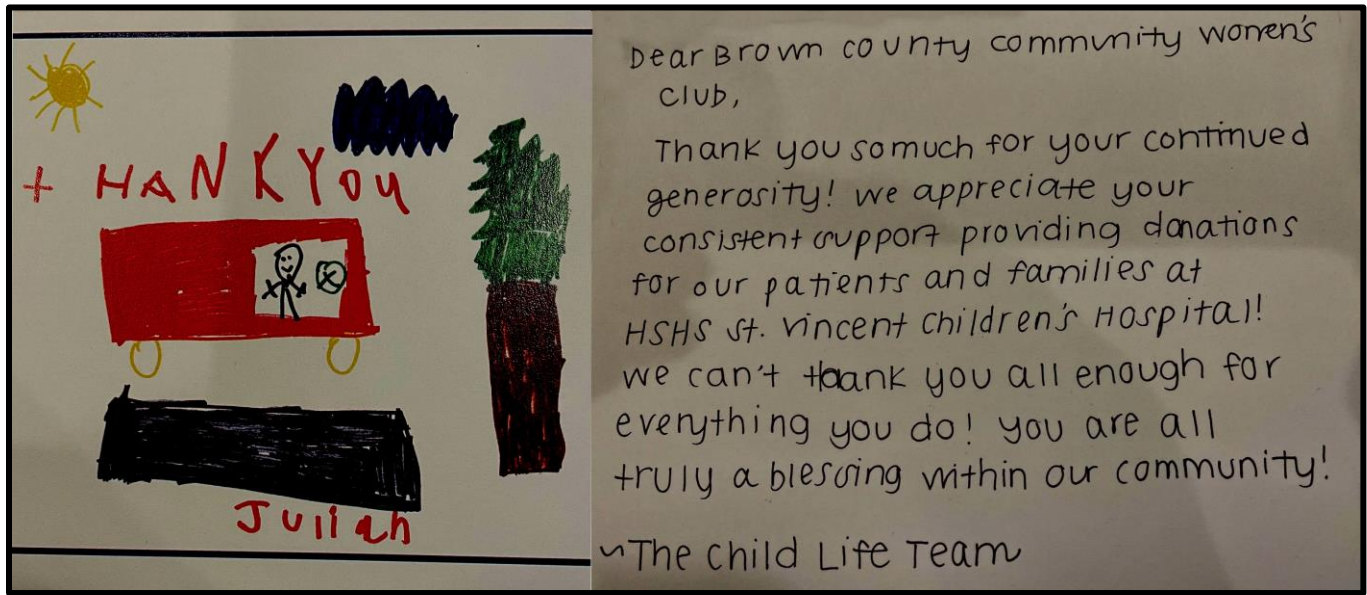 + HANKYou
Julian
Dear Brown county community women's
club,
Thank you so much for your continued
generosity! we appreciate your
consistent support providing donations
for our patients and families at
HSHS St. Vincent Children's Hospital!
we can't thank you all enough for
everything you do! you are all
truly a blessing within our community!
~The Child Life Team